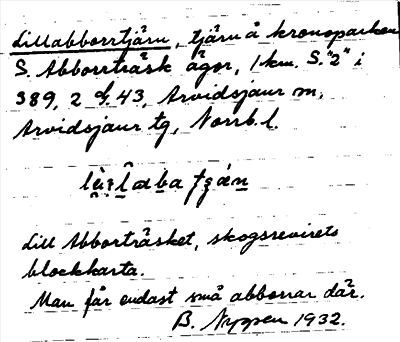 Lillabborrtjärn, tjärn å kronoparken
S. Abborrträsk ägor, 1 km. S. "2" i
389, 2 d, 43, Arvidsjaur sn,
Arvidsjaur tg, Norrb. l.
Lill Abborträsket, skogsrevirets
blockkarta.
Man får endast små abborrar där.
B. 1932.